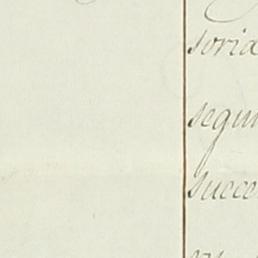 soria
segui
succe